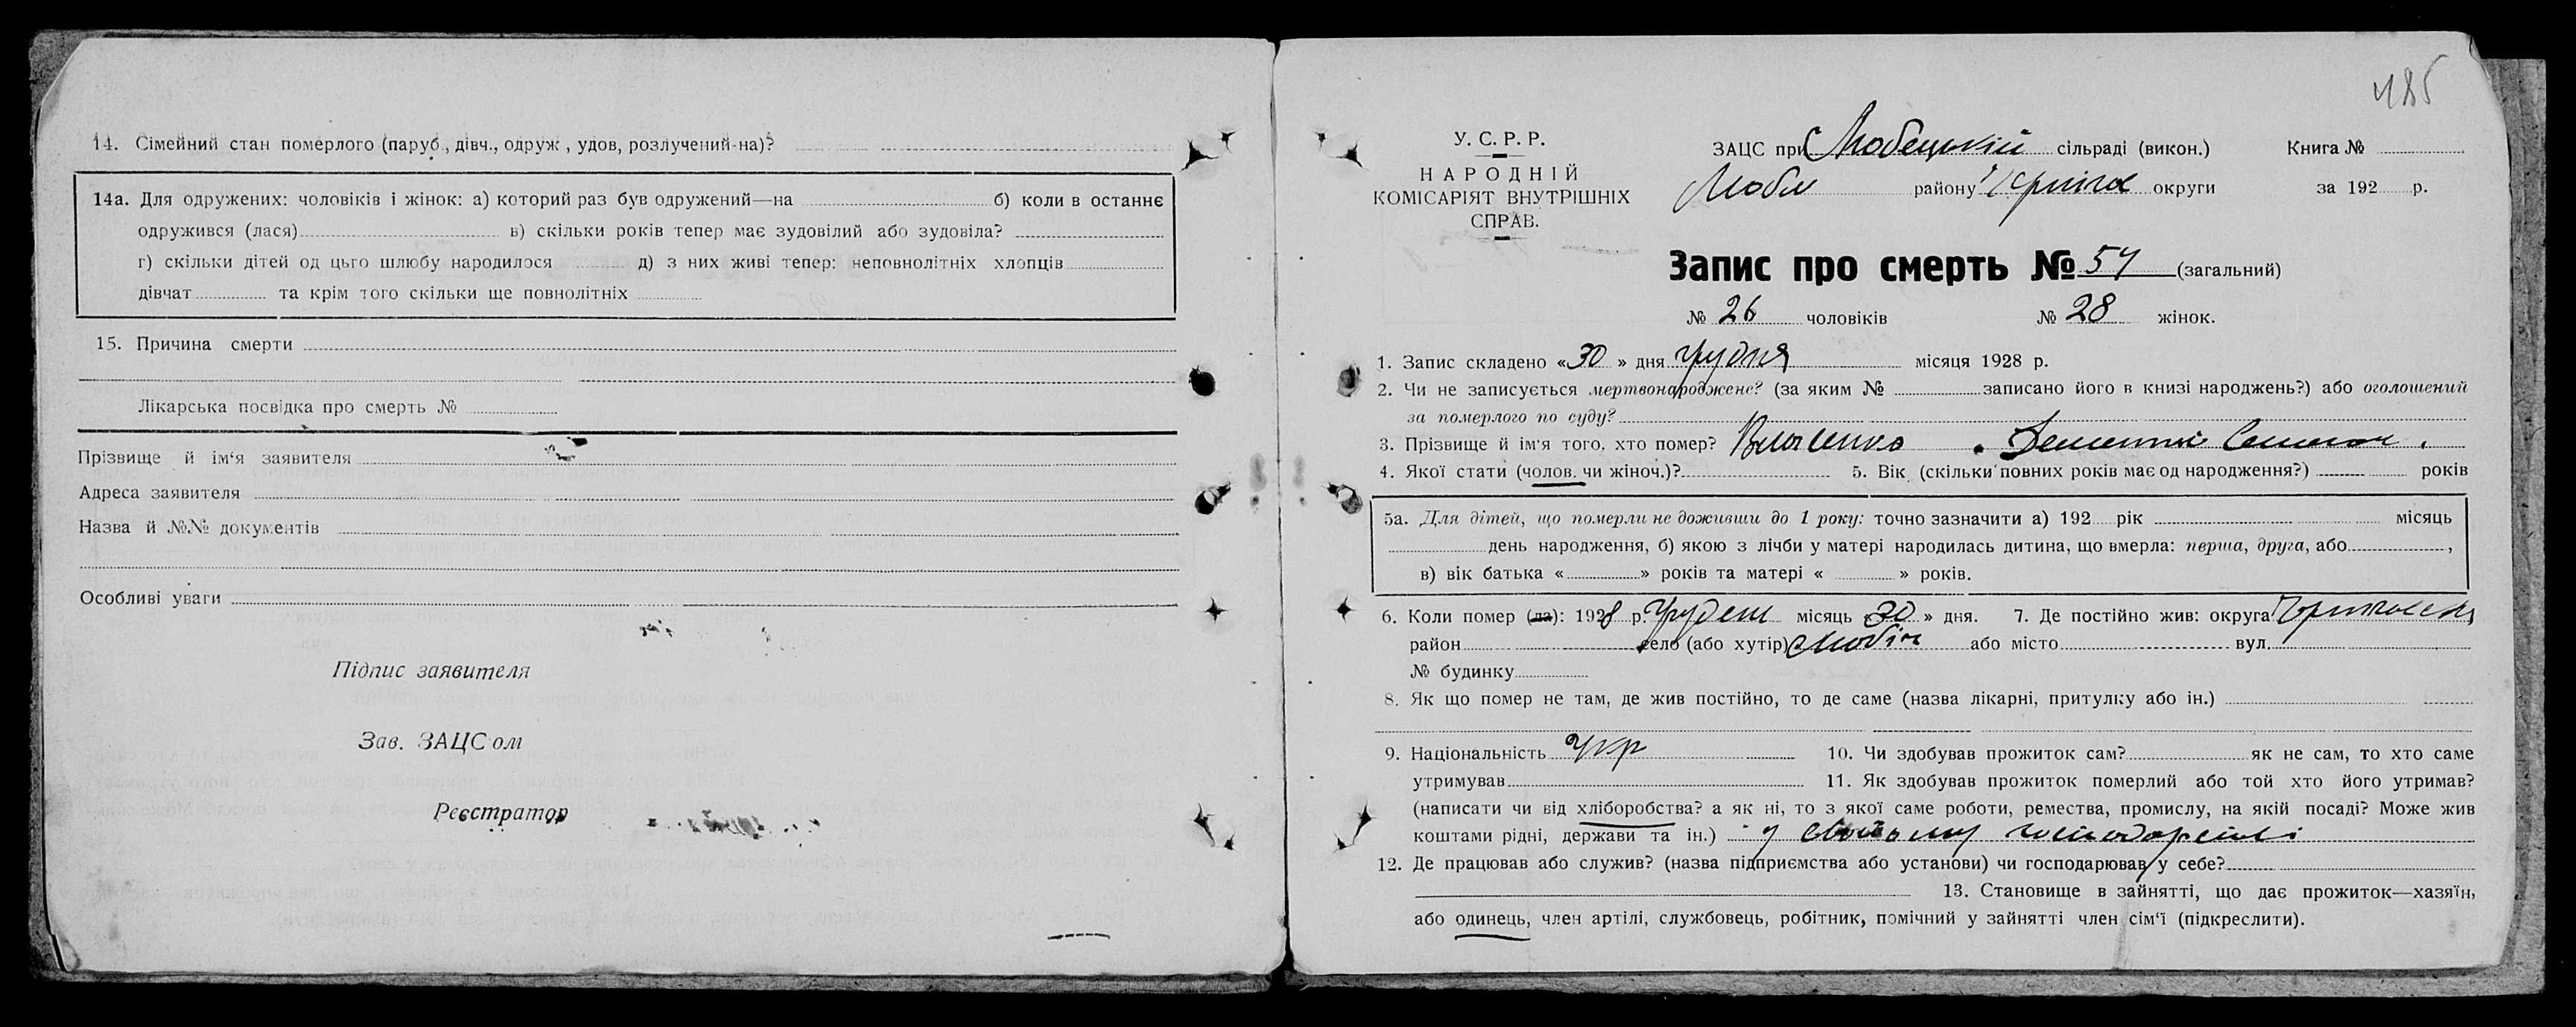 14. Сімейний стан померлого (паруб., дівч., одруж., удов, розлучений-на)?
14а. Для одружених: чоловіків і жінок: а) которий раз був одружений—на б) коли в останнє
одружився (лася) в) скільки років тепер має зудовілий або зудовіла?
г) скільки дітей од цього шлюбу народилося д) з них живі тепер: неповнолітніх хлопців
дівчат та крім того скільки ще повнолітніх
15. Причина смерти
Лікарська посвідка про смерть №
Прізвище й ім'я заявителя
Адреса заявителя
Назва й №№ документів
Особливі уваги
Підпис заявителя
Зав. ЗАЦС ом
Реєстратор
185
У.С.Р.Р.
НАРОДНІЙ
КОМІСАРІЯТ ВНУТРІШНІХ
СПРАВ.
ЗАЦС при Любецькій сільраді (викон.) Книга №
Любе району округи за 192 р.
Запис про смерть № 54 (загальний)
№ 26 чоловіків № 28 жінок.
1. Запис складено «30» дня грудня місяця 1928 р.
2. Чи не записується мертвонароджене? (за яким № записано його в книзі народжень?) або оголошений
за померлого по суду?
3. Прізвище й ім'я того, хто помер?
4. Якої стати (чолов. чи жіноч.)? 5. Вік (скільки повних років має од народження?) років
5а. Для дітей, що померли не доживши до 1 року: точно зазначити а) 192 рік місяць
день народження, б) якою з лічби у матері народилась дитина, що вмерла: перша, друга, або ,
в) вік батька « » років та матері « » років.
6. Коли помер (ла): 1928 р. Грудень місяць 30 » дня. 7. Де постійно жив: округа
район село (або хутір) Любіч або місто вул.
№ будинку
8. Як що помер не там, де жив постійно, то де саме (назва лікарні, притулку або ін.)
9. Національність Укр 10. Чи здобував прожиток сам? як не сам, то хто саме
утримував 11. Як здобував прожиток померлий або той хто його утримав?
(написати чи від хліборобства? а як ні, то з якої саме роботи, ремества, промислу, на якій посаді? Може жив
коштами рідні, держави та ін.) у своьому господарстві
12. Де працював або служив? (назва підприємства або установи) чи господарював у себе?
13. Становище в зайнятті, що дає прожиток—хазяїн,
або одинець, член артілі, службовець, робітник, помічний у зайнятті член сім'ї (підкреслити).